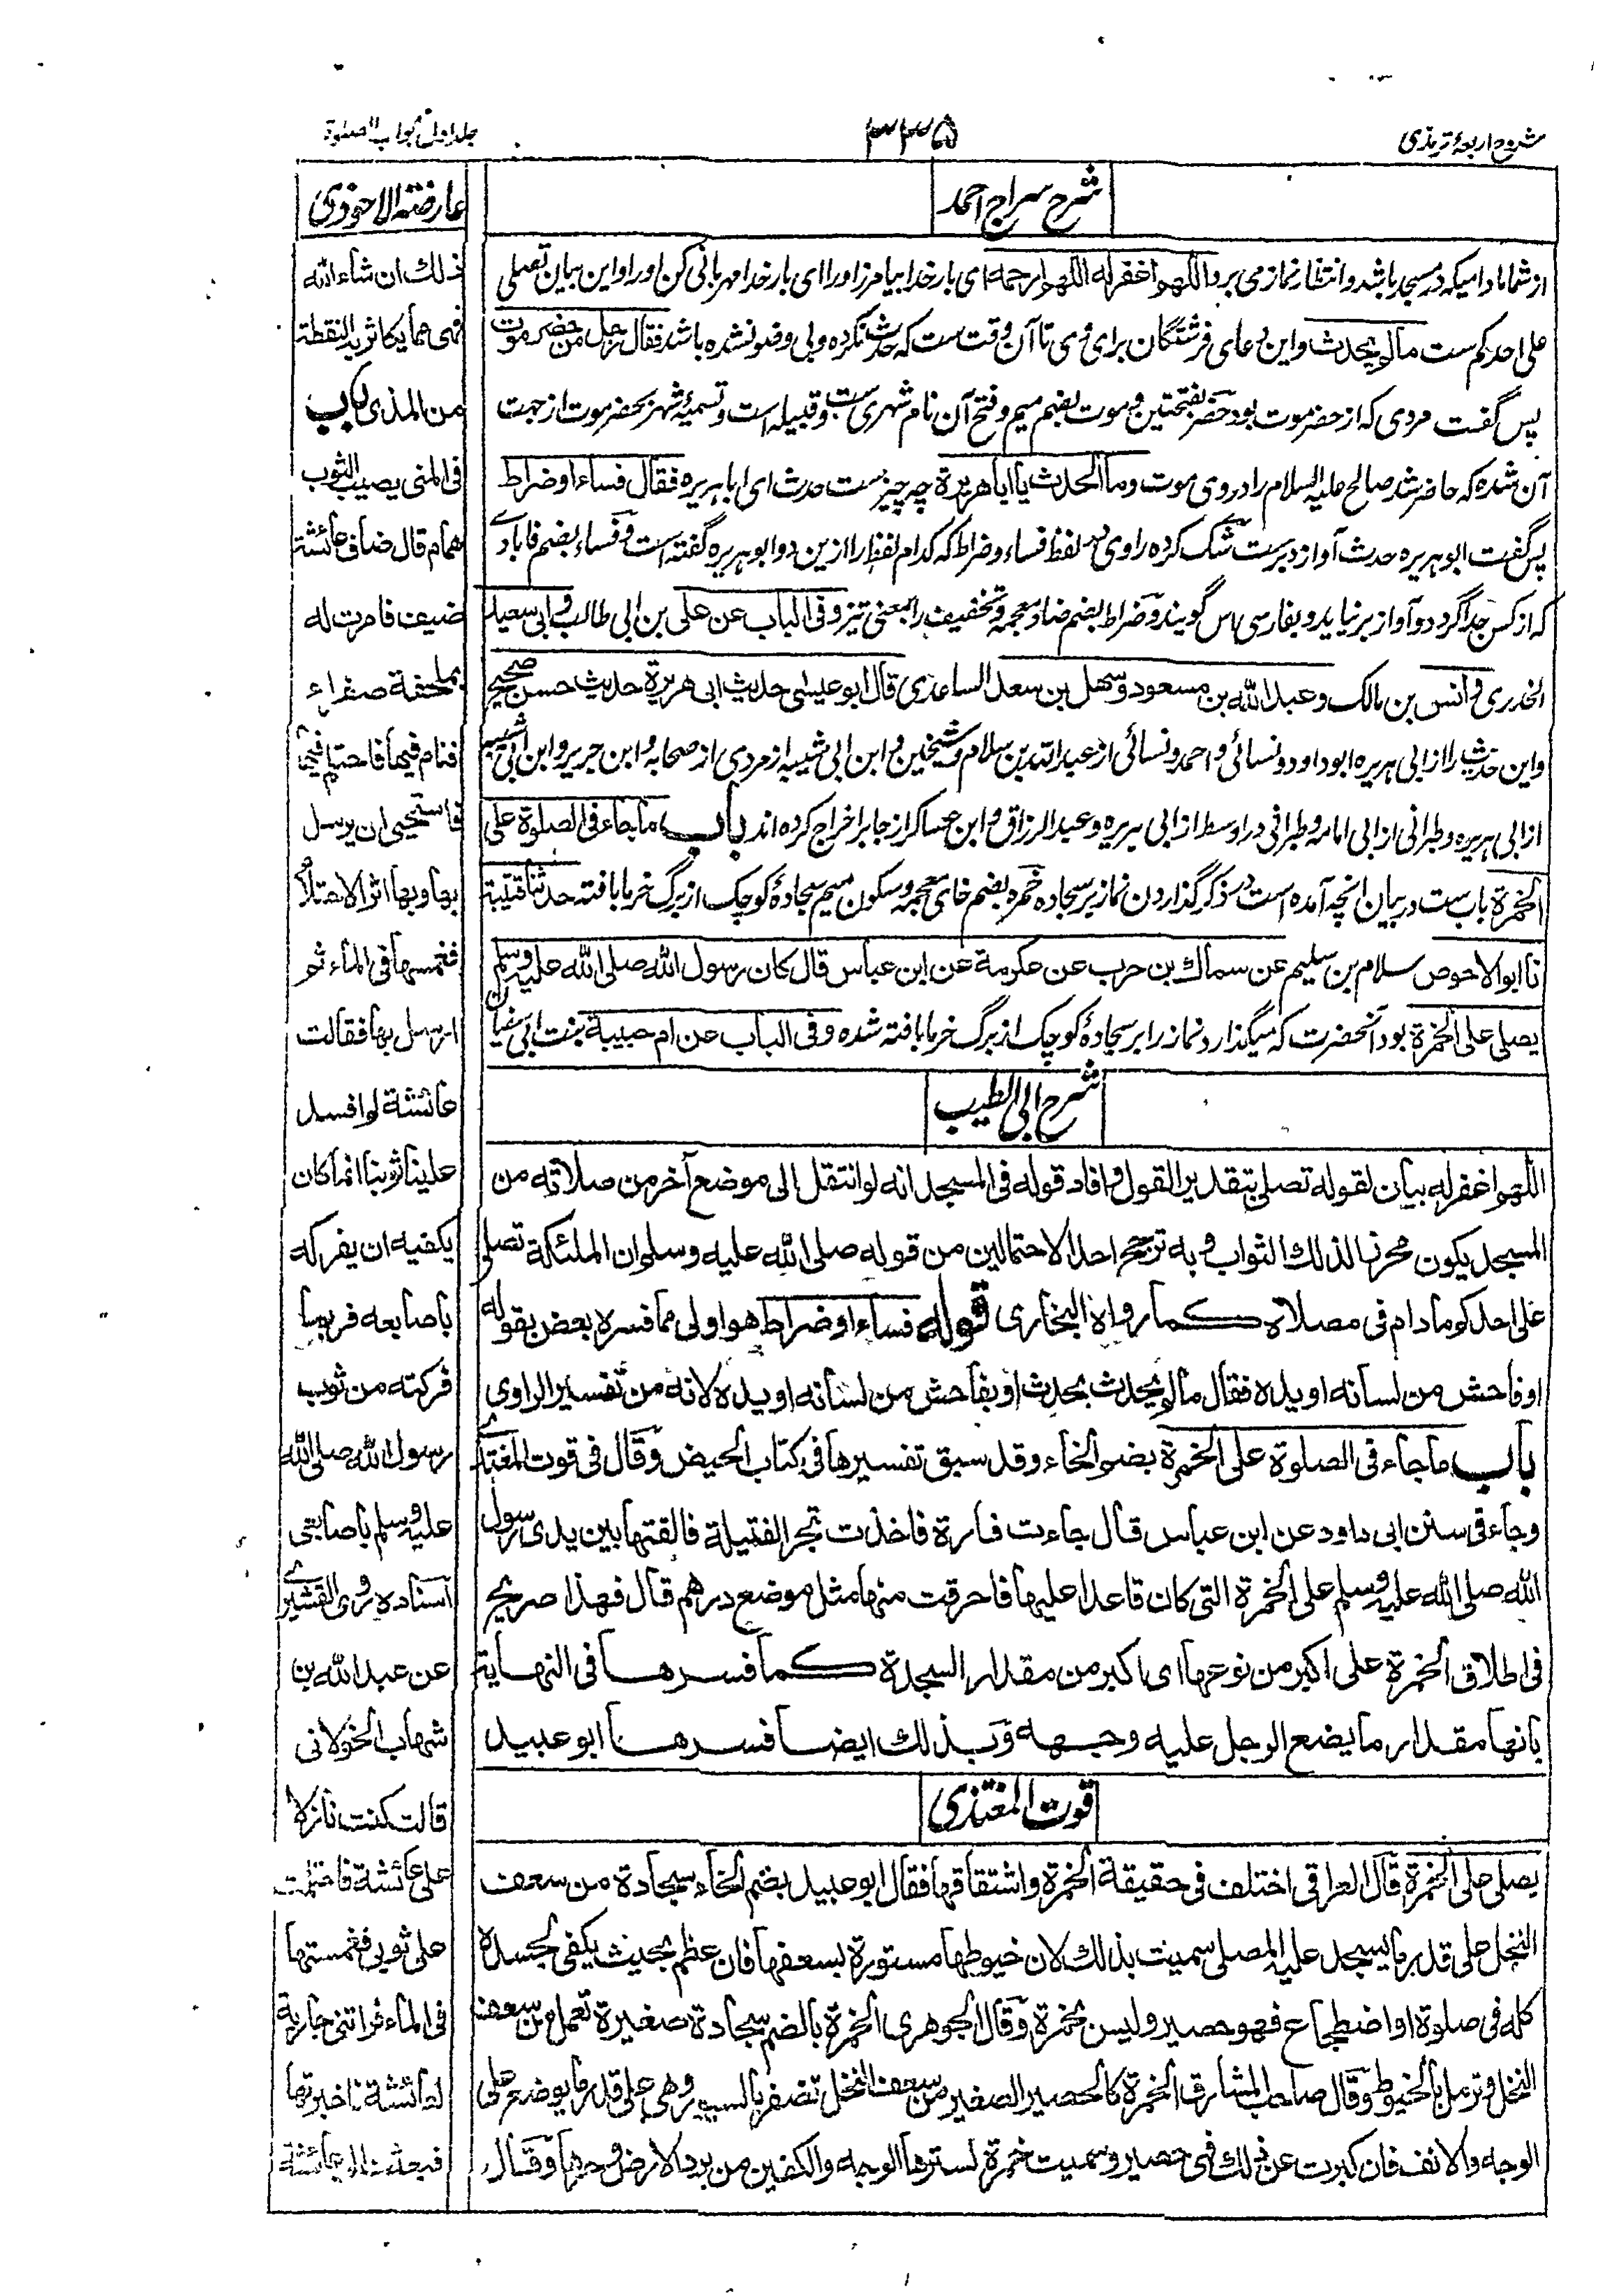 شروح اربعهٔ ترمذی
۳۳۵
جلد اول ابواب الصلوة
شرح سراج احمد
از شما مادامیکه در مسجد باشد و انتظار نماز می برد اللهم اغفر له اللهم ارحمه ای بار خدا بیامرز او را ای بار خدا مهربانی کن او را و این بیان تصلی
علی احدکم ست مالم یحدث و این دعای فرشتگان برای وی تا آن وقت ست که حدث نکرده و بی وضو نشده باشد فقال رجل من حضرموت
پس گفت مردی که از حضرموت بود حضر بفتحتین و موت بضم میم و فتح آن نام شهری ست و قبیله است و تسمیهٔ شهر بحضرموت از جهت
آن شده که حاضر شد صالح علیه السلام را در وی موت وما الحدث یا ابا هریرة چه چیز ست حدث ای ابا هریره فقال فساء او ضراط
پس گفت ابو هریره حدث آواز دبرست شک کرده راوی در لفظ فساء و ضراط که کدام لفظ را ازین دو ابو هریره گفته است و فساء بضم فا بادے
که از کس جدا گردد و آواز برنیاید و بفارسی باس گویند و ضراط بضم ضاد معجمه و تخفیف را بمعنی تیز وفی الباب عن علی بن ابی طالب وابی سعید
الخدری وانس بن مالک وعبد الله بن مسعود وسهل بن سعد الساعدی قال ابو عیسی حدیث ابی هریرة حدیث حسن صحیح
و این حدیث را از ابی هریره ابو داود و نسائی و احمد و نسائی از عبد الله بن سلام و شیخین و ابن ابی شیبه از مردی از صحابه و ابن جریر و ابن ابی شیبه
از ابی هریره و طبرانی از ابی امامه و طبرانی در اوسط از ابی هریره و عبد الرزاق و ابن عساکر از جابر اخراج کرده اند باب ما جاء فی الصلوة علی
الخمرة باب ست در بیان انچه آمده است در ذکر گذاردن نماز بر سجاده خمره بضم خای معجمه و سکون میم سجادهٔ کوچک از برگ خرما بافته حدثنا قتیبة
نا ابو الاحوص سلام بن سلیم عن سماك بن حرب عن عکرمة عن ابن عباس قال کان رسول الله صلی الله علیه وسلم
یصلی علی الخمرة بود آنحضرت که میگذارد نماز را بر سجادهٔ کوچک از برگ خرما بافته شده وفی الباب عن ام حبیبة بنت ابی سفیان
شرح ابی الطیب
اللهم اغفر له بیان لقوله تصلی بتقدیر القول وافاد قوله فی المسجد انه لو انتقل الی موضع آخر من صلاته من
المسجد یکون محرزا لذلك الثواب وبه ترجح احد الاحتمالین من قوله صلی الله علیه وسلم ان الملئکة تصلی
علی احدکم ما دام فی مصلاه کما رواه البخاری قوله فساء او ضراط هو اولی مما فسره بعض بقوله
او فاحش من لسانه او یده فقال مالم یحدث بحدث او یفاحش من لسانه او یده لانه من تفسیر الراوی
باب ما جاء فی الصلوة علی الخمرة بضم الخاء وقد سبق تفسیرها فی کتاب الحیض وقال فی قوت المغتذے
وجاء فی سنن ابی داود عن ابن عباس قال جاءت فارة فاخذت تجر الفتیلة فالقتها بین یدی رسول
الله صلی الله علیه وسلم علی الخمرة التی کان قاعدا علیها فاحرقت منها مثل موضع درهم قال فهذا صریح
فی اطلاق الخمرة علی اکبر من نوعها ای اکبر من مقدار السجدة کما فسرها فی النهایة
بانها مقدار ما یضع الرجل علیه وجهه وبذلك ایضا فسرها ابو عبید
قوت المغتذی
یصلی علی الخمرة قال العراقی اختلف فی حقیقة الخمرة واشتقاقها فقال ابو عبید بضم الخاء سجادة من سعف
النخل علی قدر ما یسجد علیه المصلی سمیت بذلك لان خیوطها مستورة بسعفها فان عظم بحیث یکفی لجسده
کله فی صلوة او اضطجاع فهو حصیر ولیس بخمرة وقال الجوهری الخمرة بالضم سجادة صغیرة تعمل من سعف
النخل وترمل بالخیوط وقال صاحب المشارق الخمرة کالحصیر الصغیر من سعف النخل تضفر بالسیور وهی علی قدر ما یوضع علی
الوجه والانف فان کبرت عن ذلك فهی حصیر وسمیت خمرة لسترها الوجه والکفین من برد الارض وحرها وقال
عارضة الاحوذی
ذلك ان شاء الله
فهی مما یکاثر بدالنقطة
من المذی باب
فی المنی یصیب الثوب
همام قال ضاف عائشة
ضیف فامرت له
بملحفة صفراء
فنام فیها فاحتلم فیها
فاستحیی ان یرسل
بها وبها اثر الاحتلام
فغمسها فی الماء ثم
ارسل بها فقالت
عائشة لم افسد
علینا ثوبنا انما کان
یکفیه ان یفرکه
باصابعه فربما
فرکته من ثوب
رسول الله صلی الله
علیه وسلم باصابعی
اسناده روی القشیرے
عن عبد الله بن
شهاب الخولانی
قالت کنت نازلا
علی عائشة فاحتلمت
علی ثوبی فغمستها
فی الماء فراتنی جاریة
لعائشة فاخبرتها
فبعثت الی عائشة